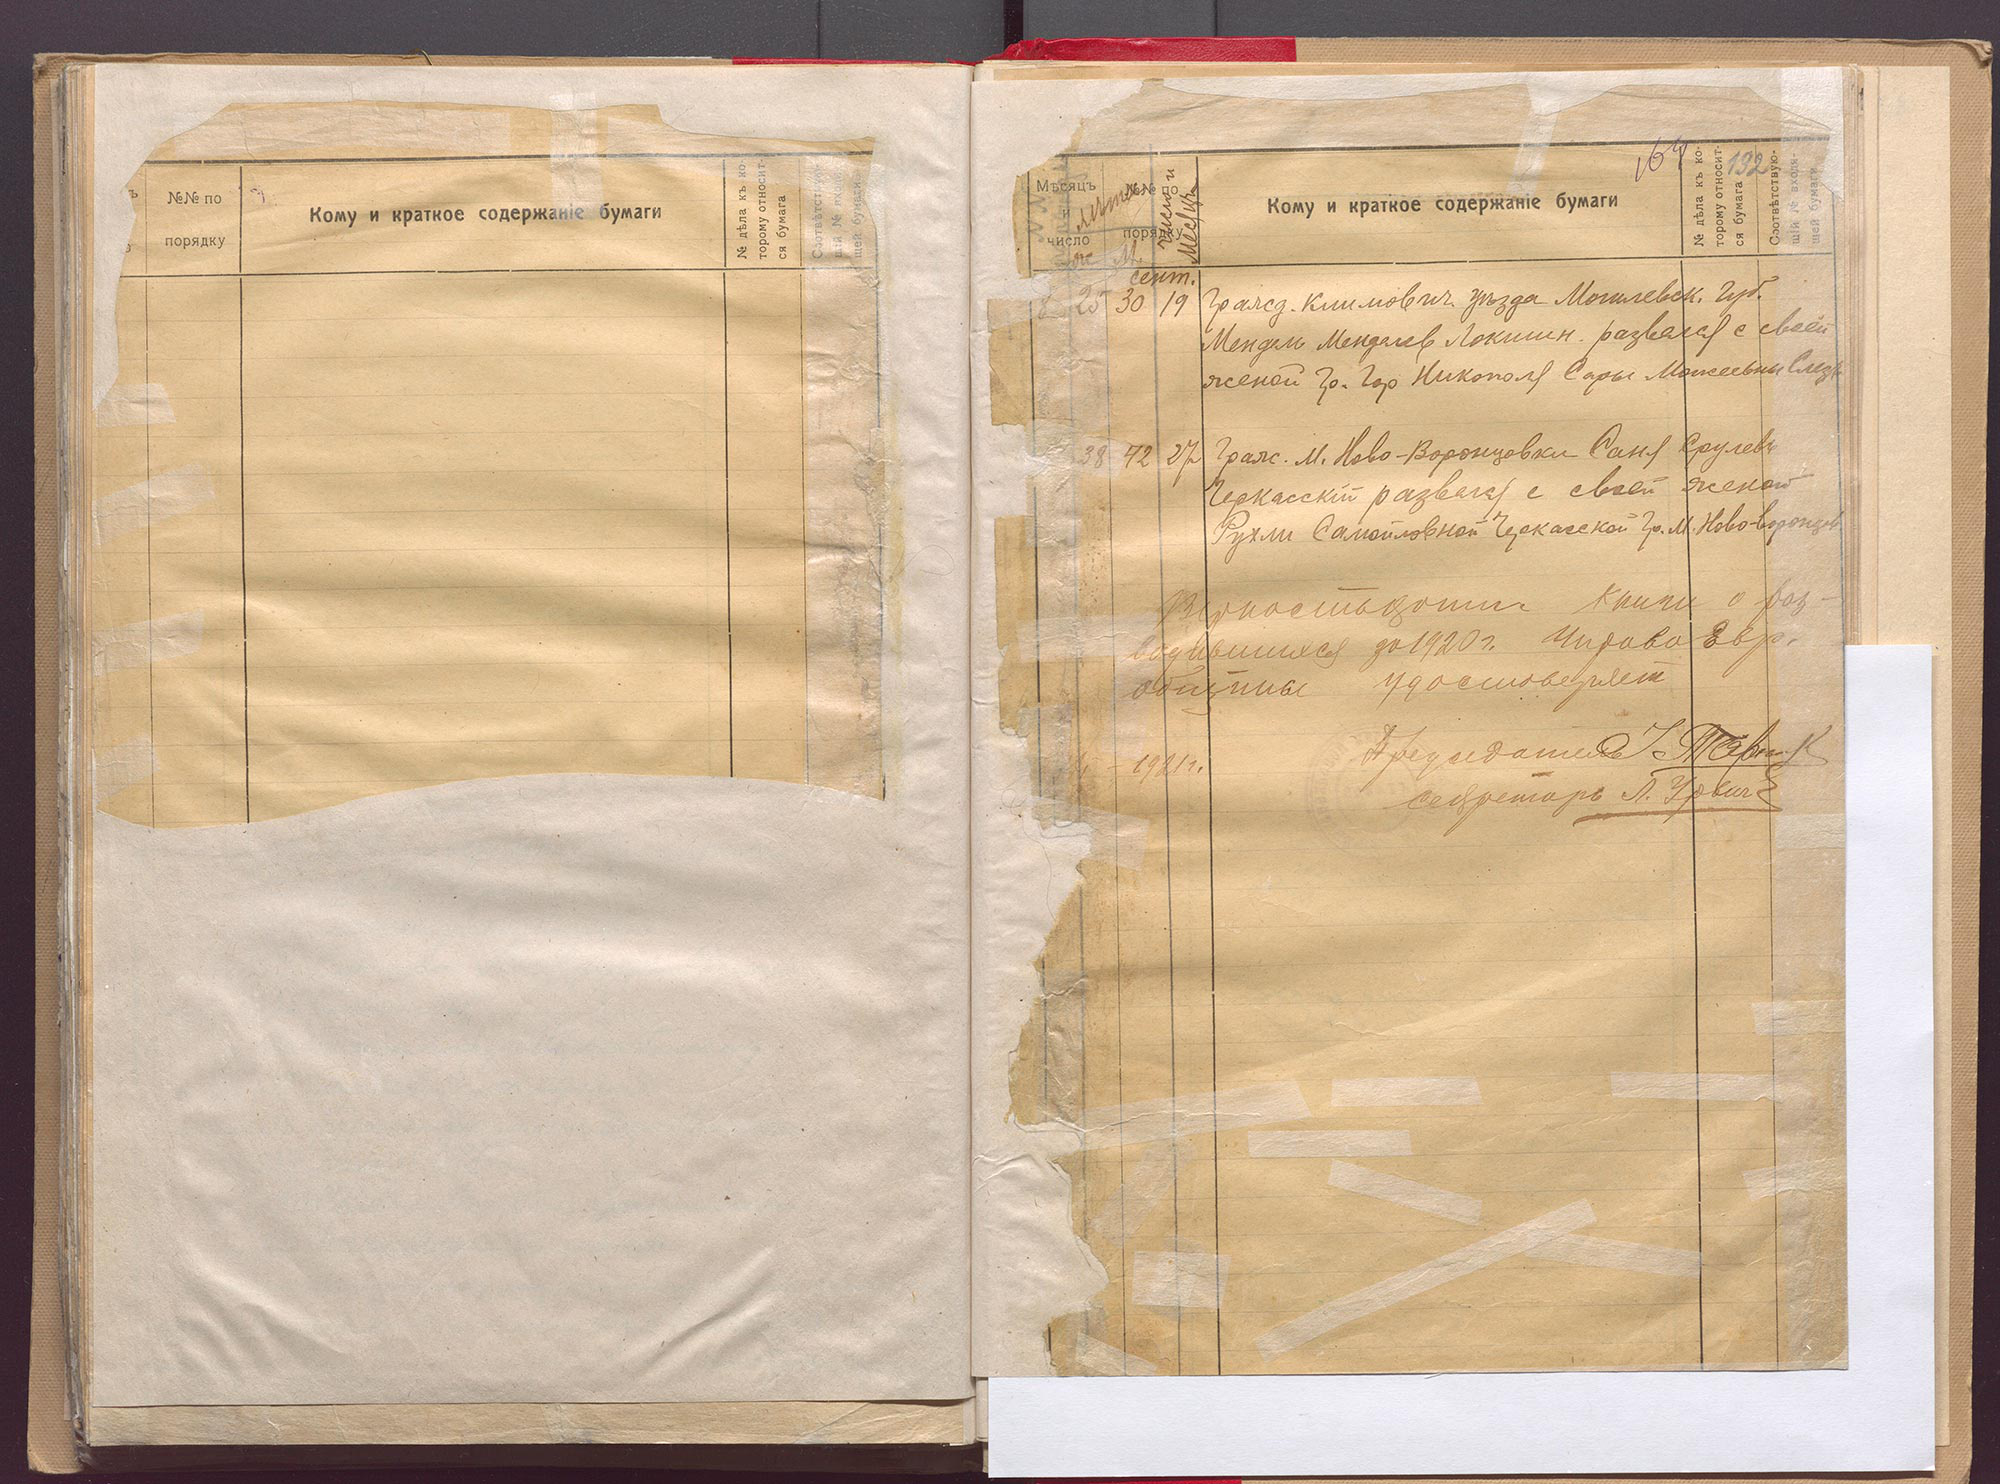 №№ по
порядку
Кому и краткое содержаніе бумаги
№ дѣла къ ко-
торому относит-
ся бумага
Соотвѣтствую-
щій № входя-
щей бумаги
164
192
Мѣсяцъ
и
число
лѣта
№№ по
порядку
число и
Месяцъ
Кому и краткое содержаніе бумаги
№ дѣла къ ко-
торому относит-
ся бумага
Соотвѣтствую-
щій № входя-
щей бумаги
М.
сент.
8 25 30 19 Гражд. Климович. уѣзда Могилевск. Губ.
Мендель Менделев Локшин. развелся с своей
женой Гр. Гор Никополя Сары Мошеевны
38 42 27 Граж. М. Ново-Воронцовки Саня Срулев
Черкасскій развелся с своей женой
Рухли Самойловной Черкасской Гр. М. Ново-Воронцов
Верность копии книги о раз-
водившихся до 1920 г. Управа Евр.
общины удостоверяет
1921 г.
Председатель
секретарь Л. Урвич